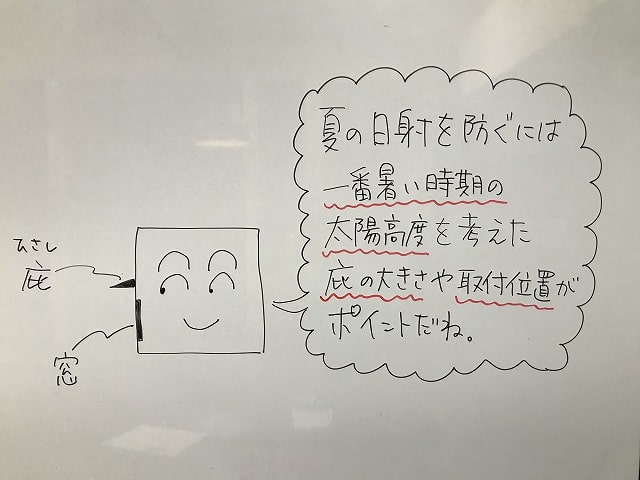 夏の日射を防ぐには
一番暑い時期の
太陽高度を考えた
庇の大きさや取付位置が
ポイントだね。
ひさし
庇
窓